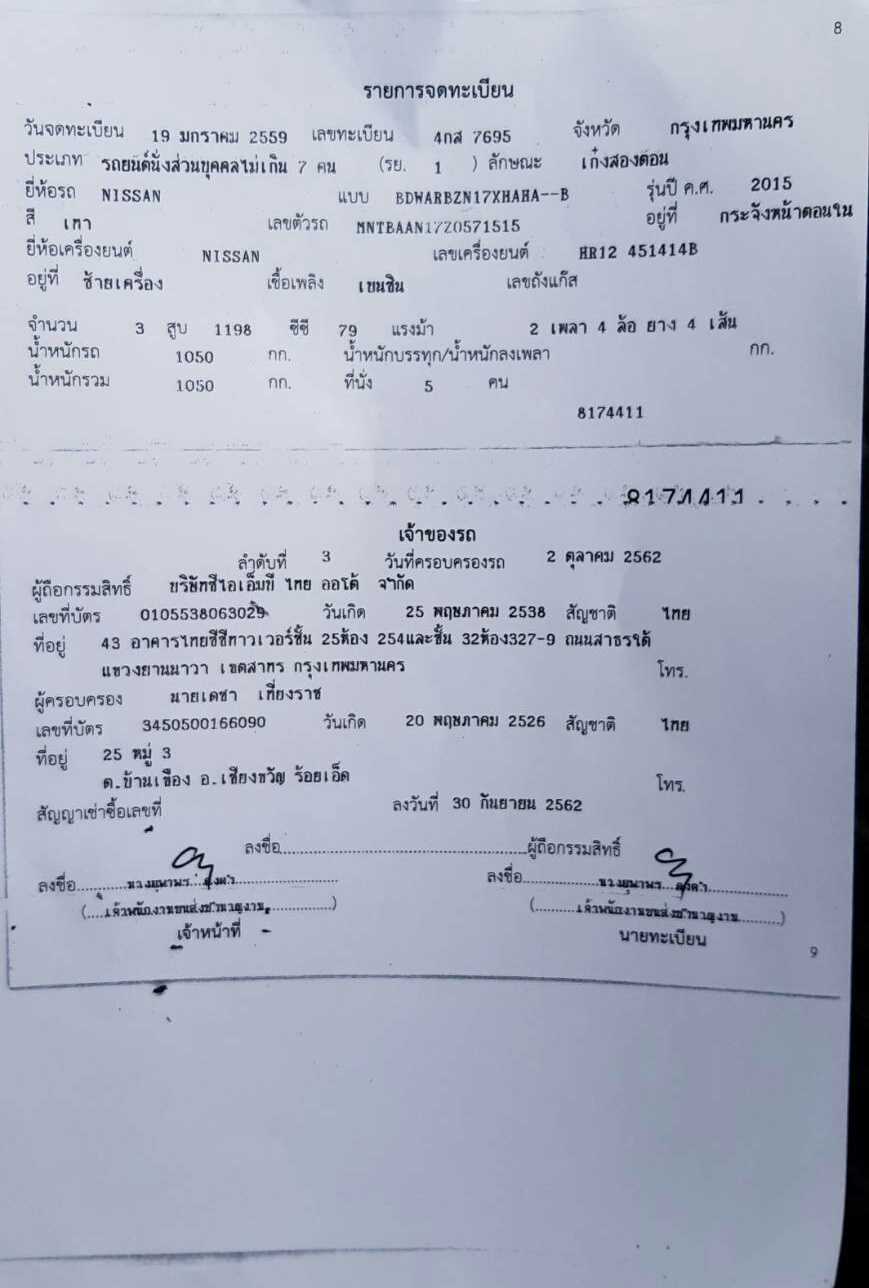 8
รายการจดทะเบียน
วันจดทะเบียน 19 มกราคม 2559 เลขทะเบียน 4กส 7695 จังหวัด กรุงเทพมหานคร
ประเภท รถยนต์นั่งส่วนบุคคลไม่เกิน 7 คน (รย. 1 ) ลักษณะ เก๋งสองตอน
ยี่ห้อรถ NISSAN แบบ BDWARBZN17XHAHA--B รุ่นปี ค.ศ. 2015
สี เทา เลขตัวรถ MNTBAAN17Z0571515 อยู่ที่ กระจังหน้าตอนใน
ยี่ห้อเครื่องยนต์ NISSAN เลขเครื่องยนต์ HR12 451414B
อยู่ที่ ซ้ายเครื่อง เชื้อเพลิง เบนซิน เลขถังแก๊ส
จำนวน 3 สูบ 1198 ซีซี 79 แรงม้า 2 เพลา 4 ล้อ ยาง 4 เส้น
น้ำหนักรถ 1050 กก. น้ำหนักบรรทุก/น้ำหนักลงเพลา กก.
น้ำหนักรวม 1050 กก. ที่นั่ง 5 คน
8174411
8174411
เจ้าของรถ
ลำดับที่ 3 วันที่ครอบครองรถ 2 ตุลาคม 2562
ผู้ถือกรรมสิทธิ์ บริษัทซีไอเอ็มบี ไทย ออโต้ จำกัด
เลขที่บัตร 0105538063029 วันเกิด 25 พฤษภาคม 2538 สัญชาติ ไทย
ที่อยู่ 43 อาคารไทยซีซีทาวเวอร์ชั้น 25ห้อง 254และชั้น 32ห้อง327-9 ถนนสาธรใต้
แขวงยานนาวา เขตสาทร กรุงเทพมหานคร โทร.
ผู้ครอบครอง นายเดชา เที่ยงราช
เลขที่บัตร 3450500166090 วันเกิด 20 พฤษภาคม 2526 สัญชาติ ไทย
ที่อยู่ 25 หมู่ 3
ต.บ้านเขือง อ.เชียงขวัญ ร้อยเอ็ด โทร.
สัญญาเช่าซื้อเลขที่ ลงวันที่ 30 กันยายน 2562
ลงชื่อ ผู้ถือกรรมสิทธิ์
ลงชื่อ นางยุพาพร ลงชื่อ นางยุพาพร
(เจ้าพนักงานขนส่งชำนาญงาน) (เจ้าพนักงานขนส่งชำนาญงาน)
เจ้าหน้าที่ นายทะเบียน
9